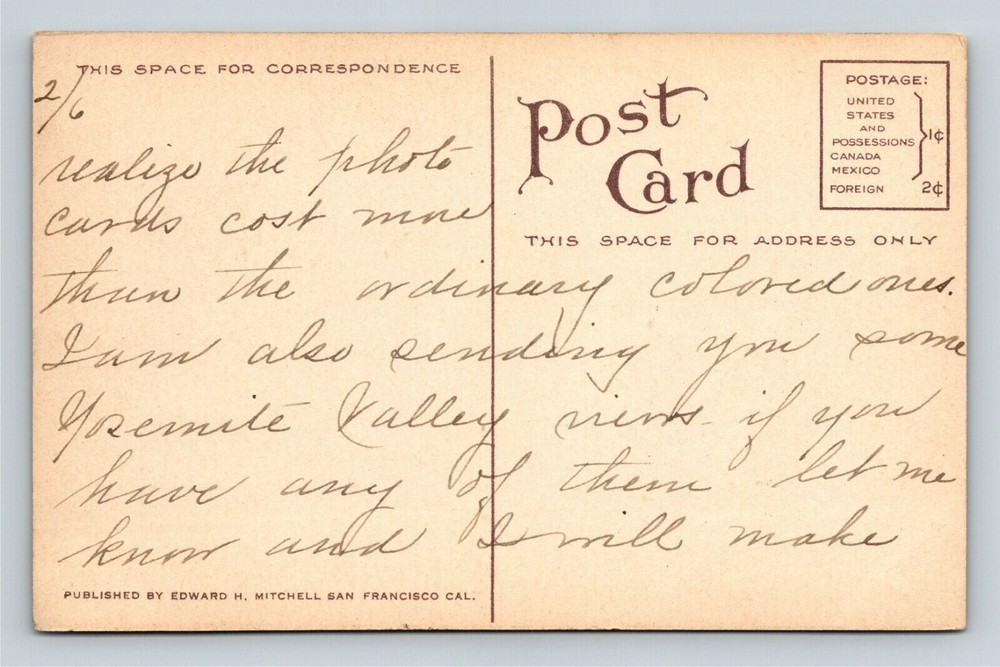 THIS SPACE FOR CORRESPONDENCE
2/6
realize the photo
cards cost more
than the ordinary colored ones.
I am also sending you some
Yosemite Valley views. if you
have any of them let me
know and I will make
PUBLISHED BY EDWARD H. MITCHELL SAN FRANCISCO CAL.
Post
Card
THIS SPACE FOR ADDRESS ONLY
POSTAGE:
UNITED
STATES
AND
POSSESSIONS
CANADA
MEXICO
1¢
FOREIGN 2¢